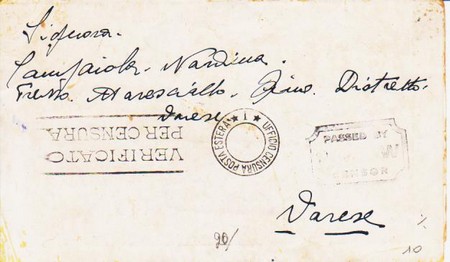 Signora.
Nardina.
Presso Maresciallo. Distretto.
Varese
VERIFICATO
PER CENSURA
UFFICIO CENSURA POSTA ESTERA ★ 1 ★
PASSED BY
Varese
90/
10